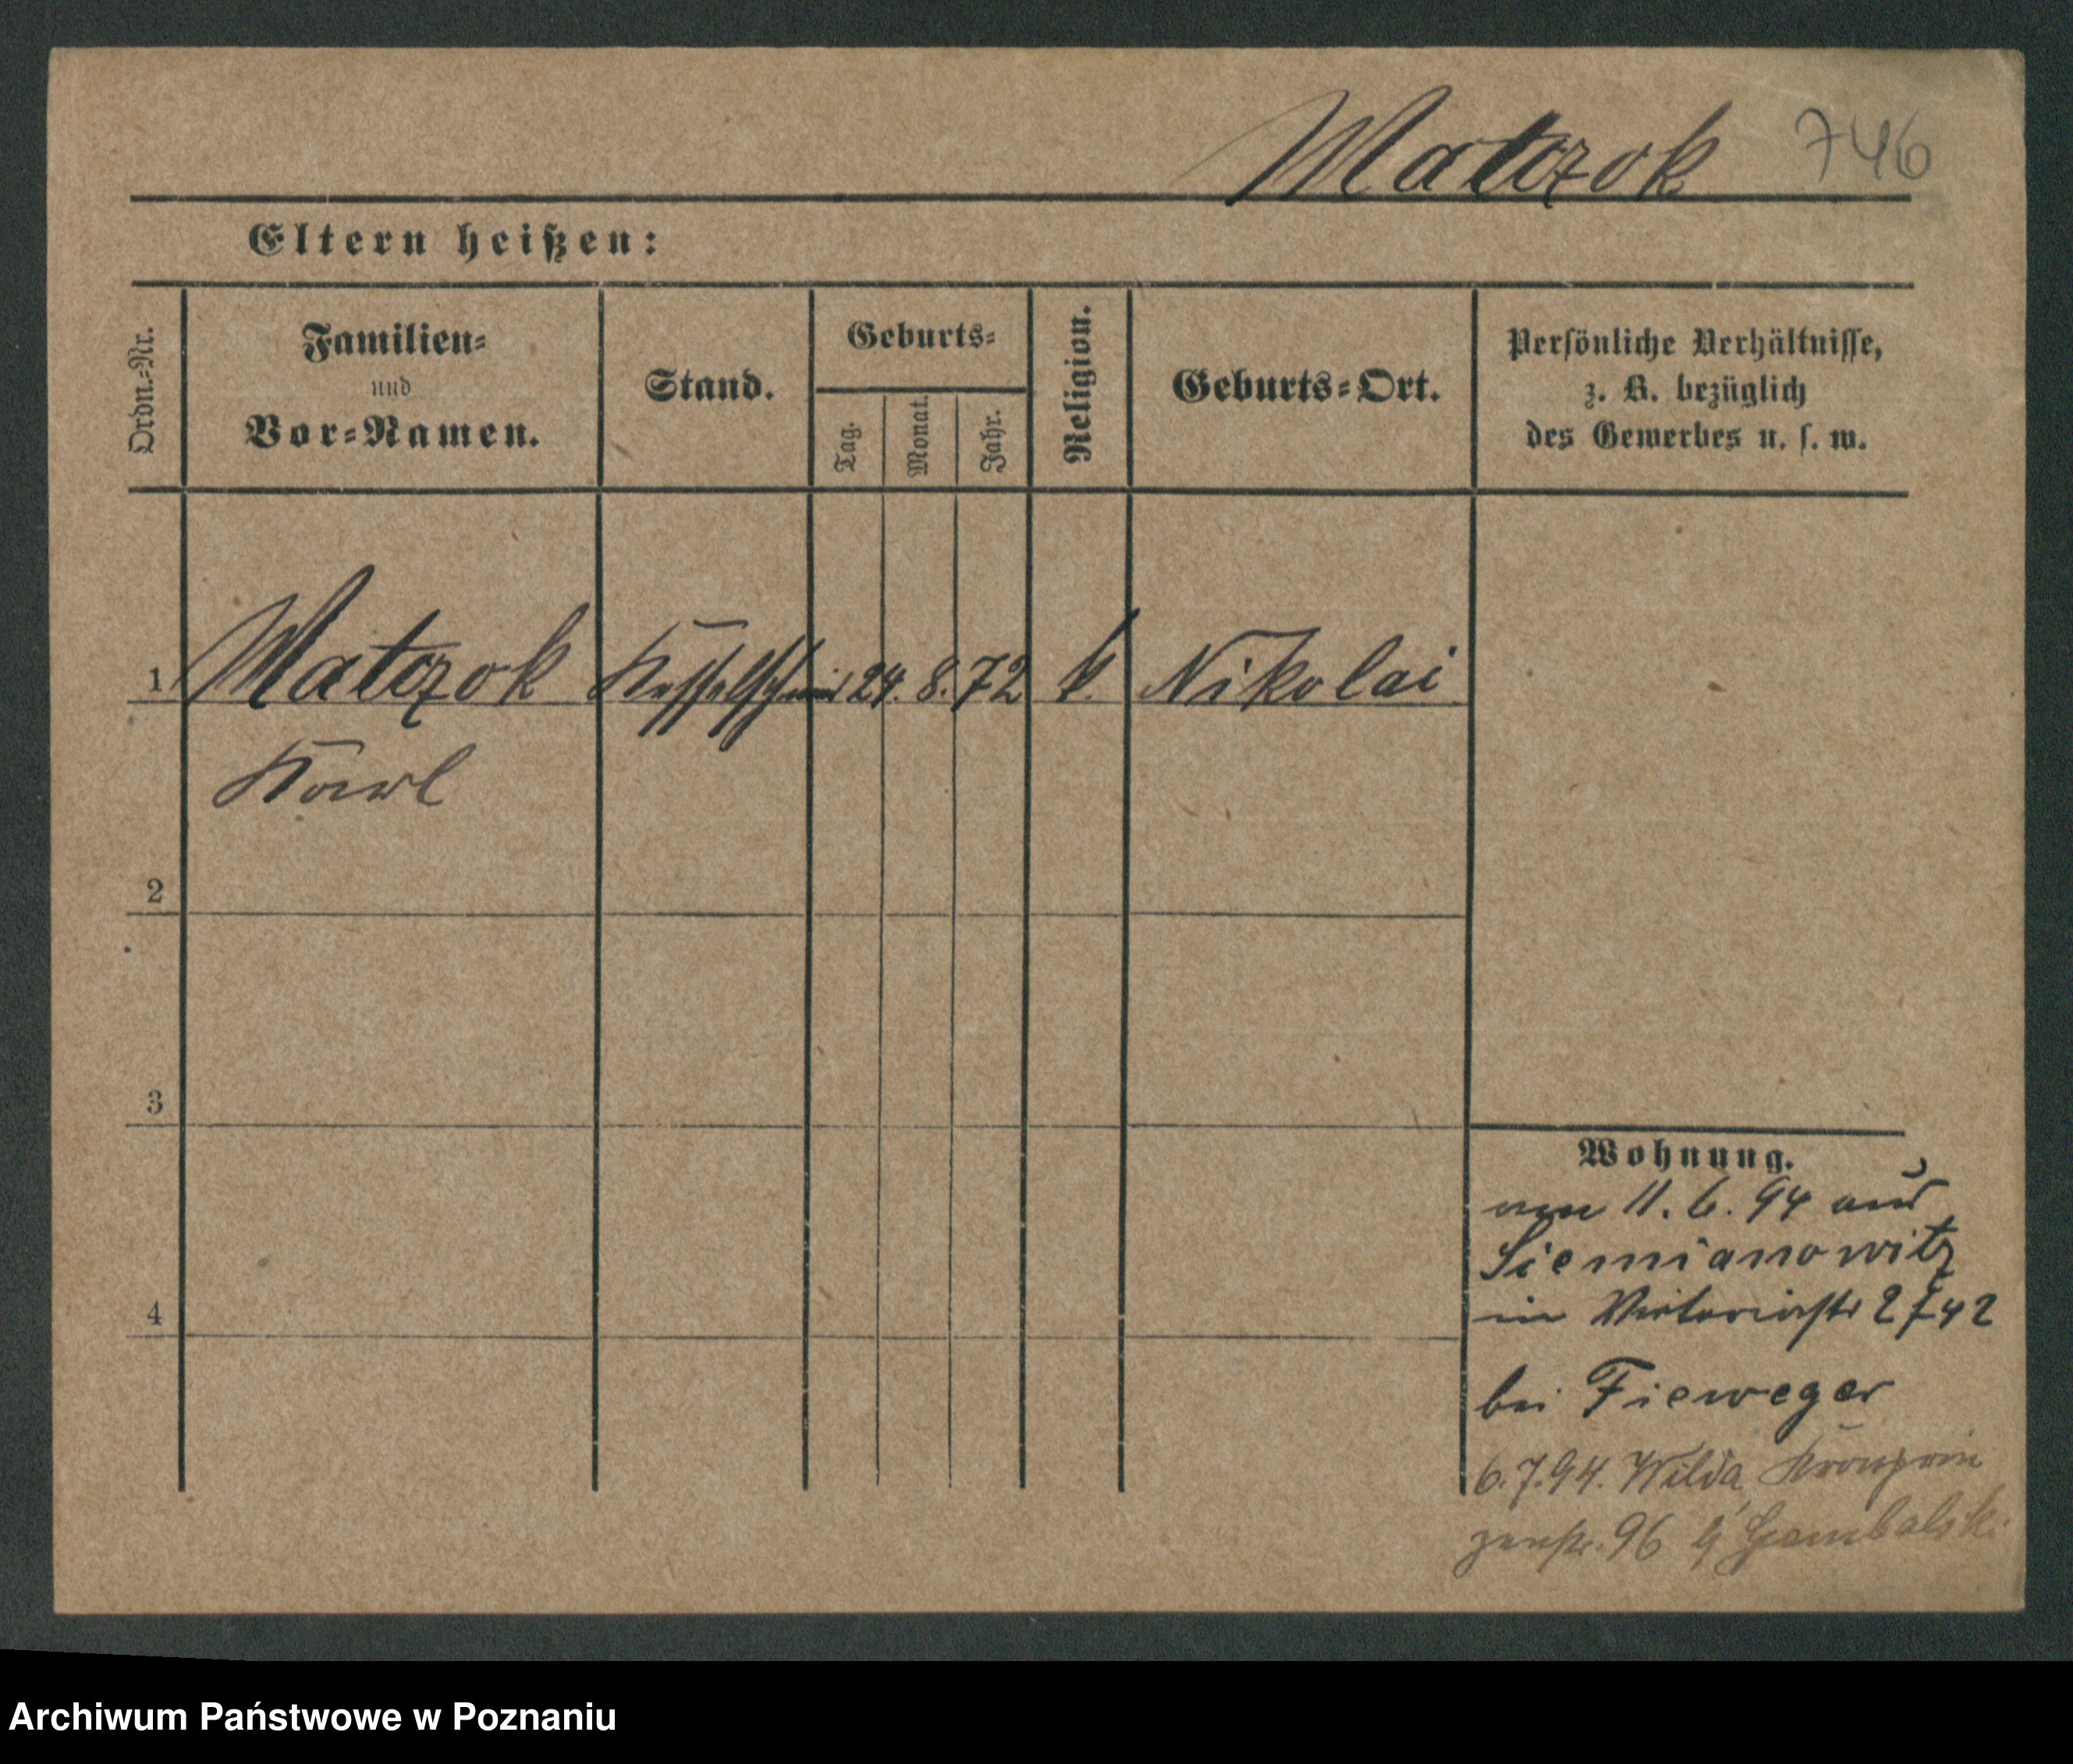 Matczok 746
Eltern heißen:
Ordn.-Nr.
Familien-
und
Vor-Namen.
Stand.
Geburts-
Tag.
Monat.
Jahr.
Religion.
Geburts-Ort.
Persönliche Verhältnisse,
z. B. bezüglich
des Gewerbes u. s. w.
1 Matczok Kesselschmied 24. 8. 72 k. Nikolai
Karl
2
3
4
Wohnung.
11. 6. 94 aus
Siemianowitz
in Viktoriastr 27 42
bei Fieweger
6.7.94. Wilda, Kronprin
zenstr. 96 Gembalski
Archiwum Państwowe w Poznaniu